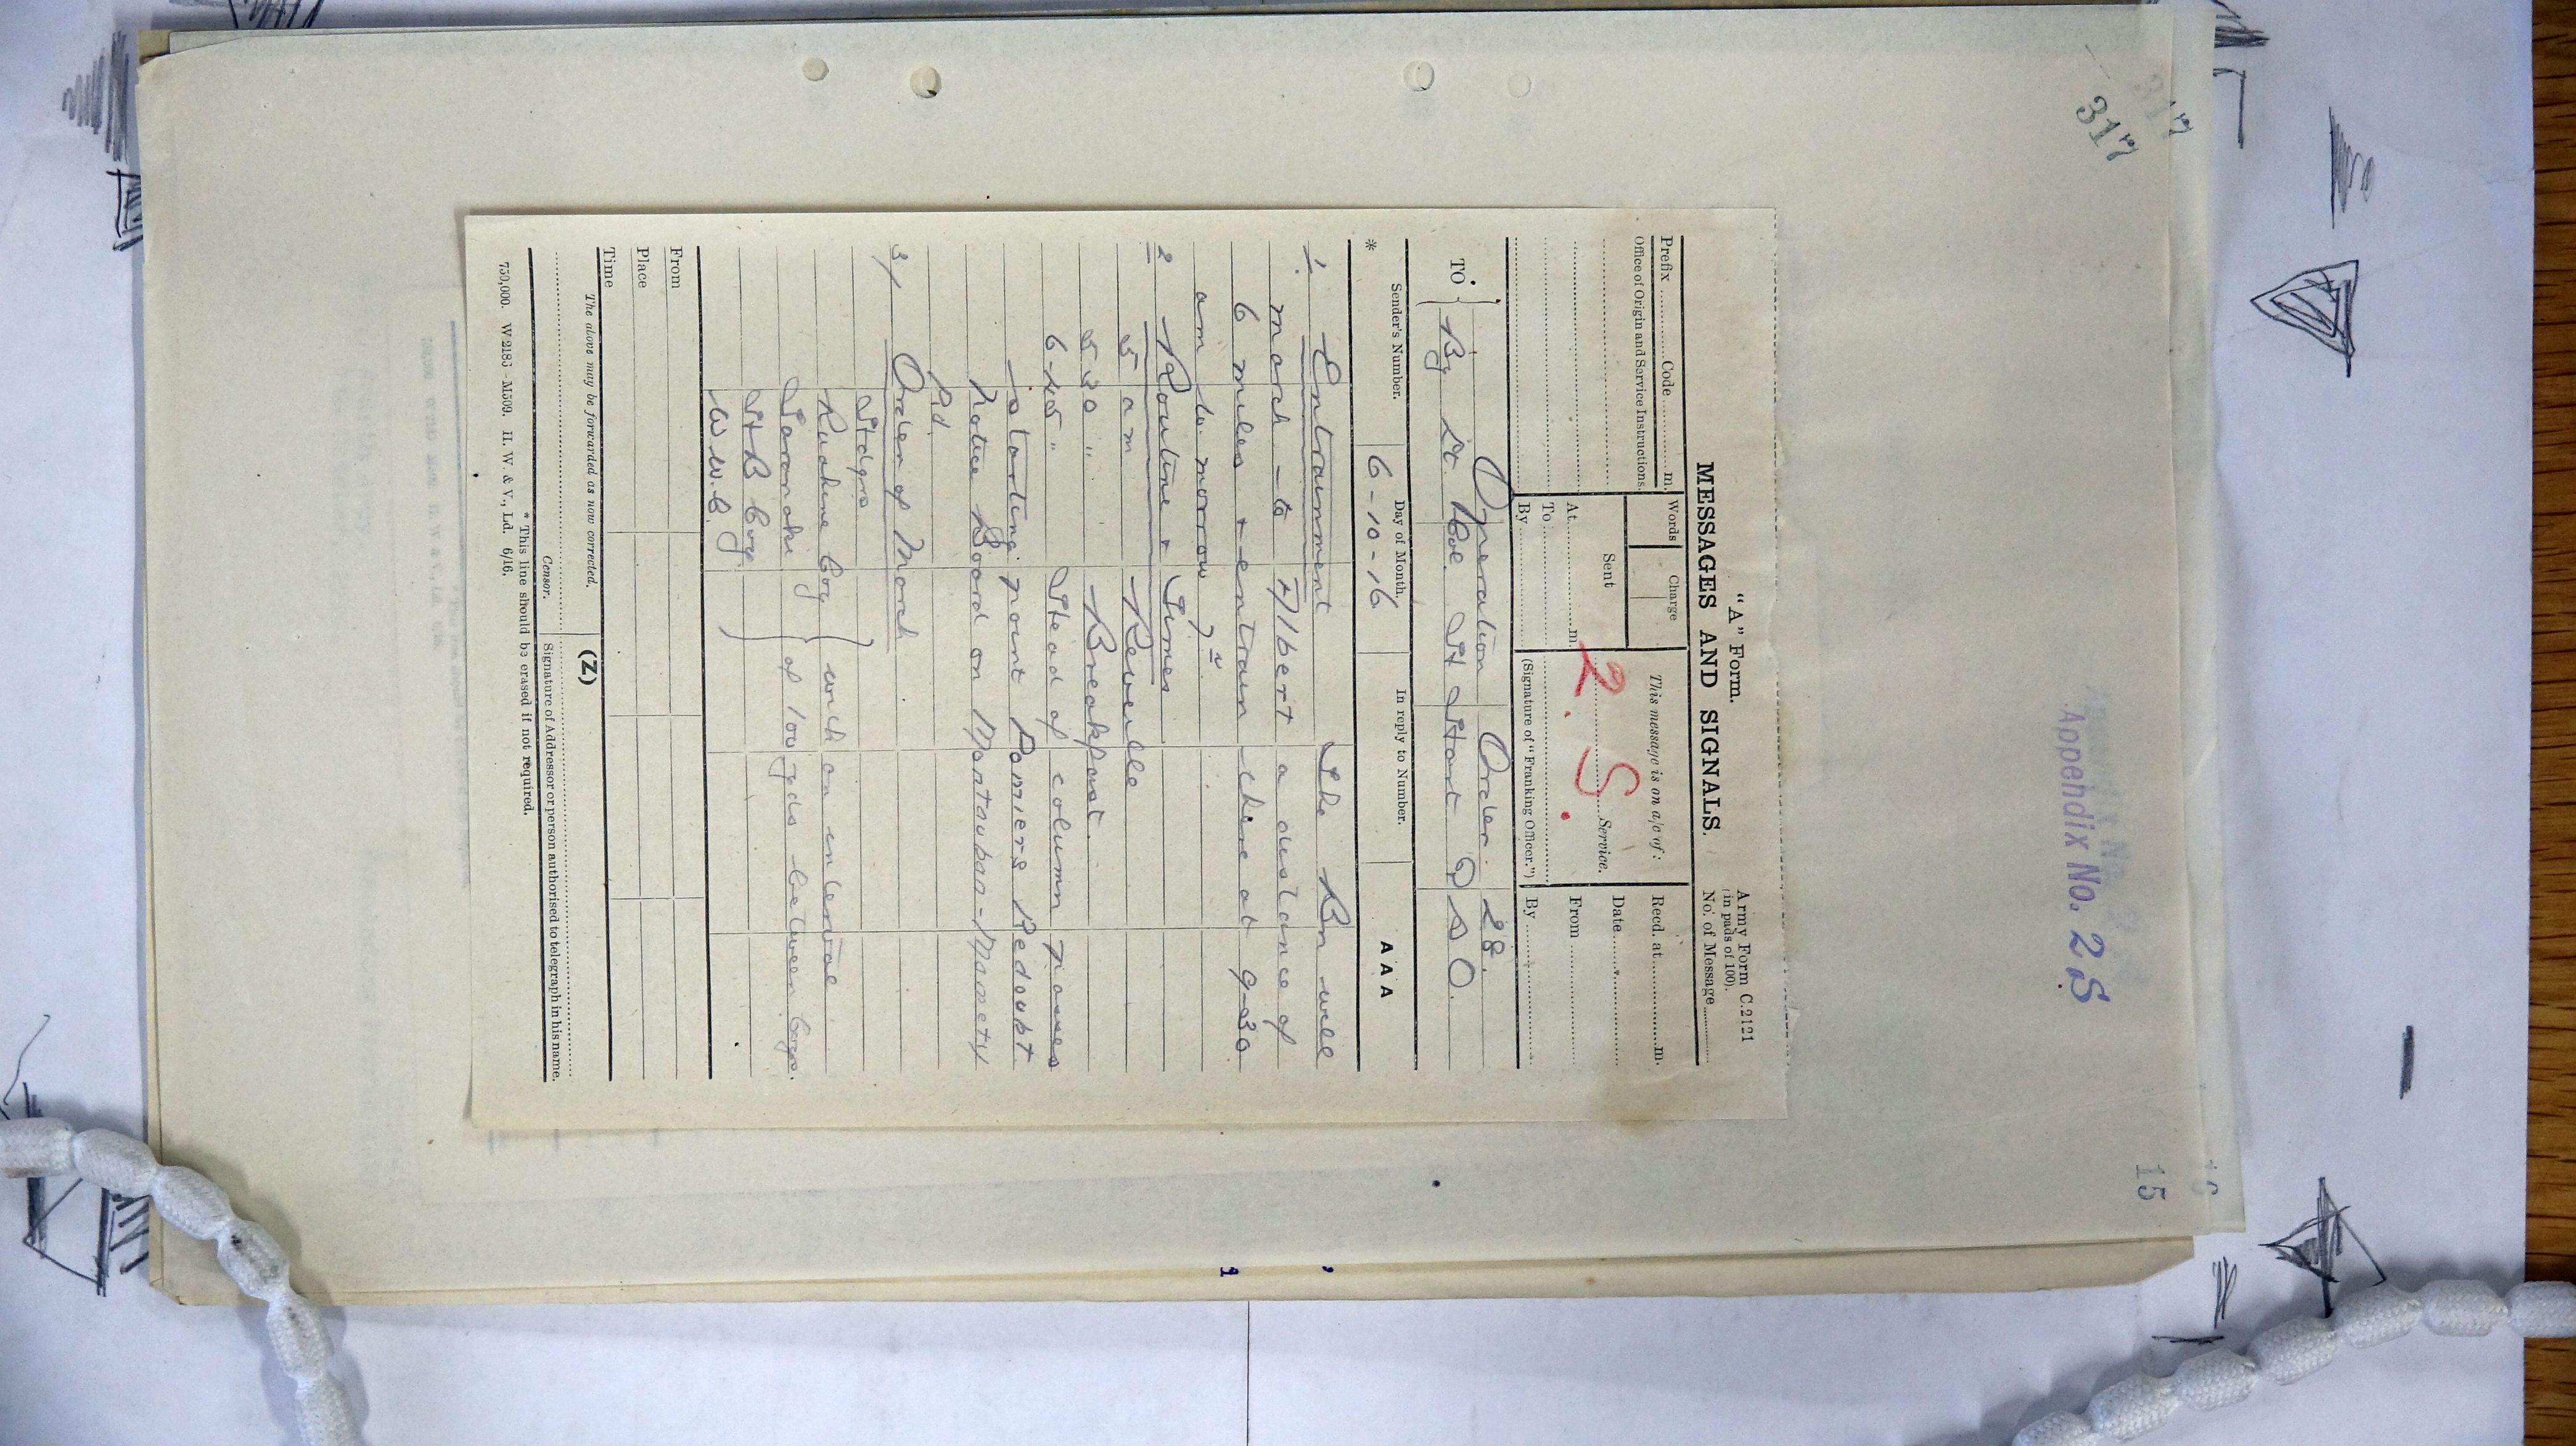 317
317
Appendix No. 2S.
15
"A" Form.
MESSAGES AND SIGNALS.
Army Form C.2121
(in pads of 100).
No. of Message
Prefix Code m.
Words
Charge
This message is on a/c of:
Recd. at m.
Office of Origin and Service Instructions.
Sent
Service.
Date
At m.
2.S.
From
To
By
(Signature of "Franking Officer.")
By
Operation Order 28.
TO
By Lt. Col. H Hart DSO.
Sender's Number.
Day of Month.
In reply to Number.
AAA
*
6-10-16
1. Entrainment The Bn will
march to Albert a distance of
6 miles & entrain there at 9-30
am to-morrow 7th.
2 Routine & Times
5 am Reveille
5 30 " Breakfast.
6-45 " Head of column passes
starting point Pomiers Redoubt
notice Board on Montauban-Mametz
Rd.
3/ Order of March
Hdqrs
Ruahine Coy with an interval
Taranaki of 100 yds between Coys.
H B Coy
W.W.C.
From
Place
Time
The above may be forwarded as now corrected.
(Z)
Censor.
Signature of Addressor or person authorised to telegraph in his name.
* This line should be erased if not required.
750,000. W 2186-M509. H. W. & V., Ld. 6/16.